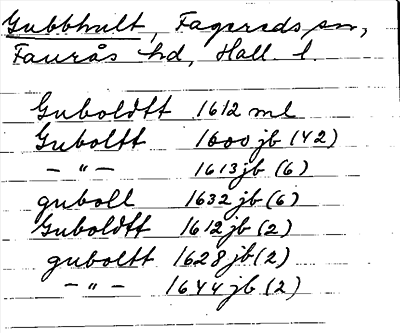 Gubbhult, Fagereds sn,
Faurås hd, Hall. l.
Guboldtt 1612 ml
Guboltt 1600 jb (42)
— " — 1613 jb (6)
guboll 1632 jb (6)
Guboldtt 1612 jb (2)
guboltt 1628 jb (2)
— " — 1644 jb (2)